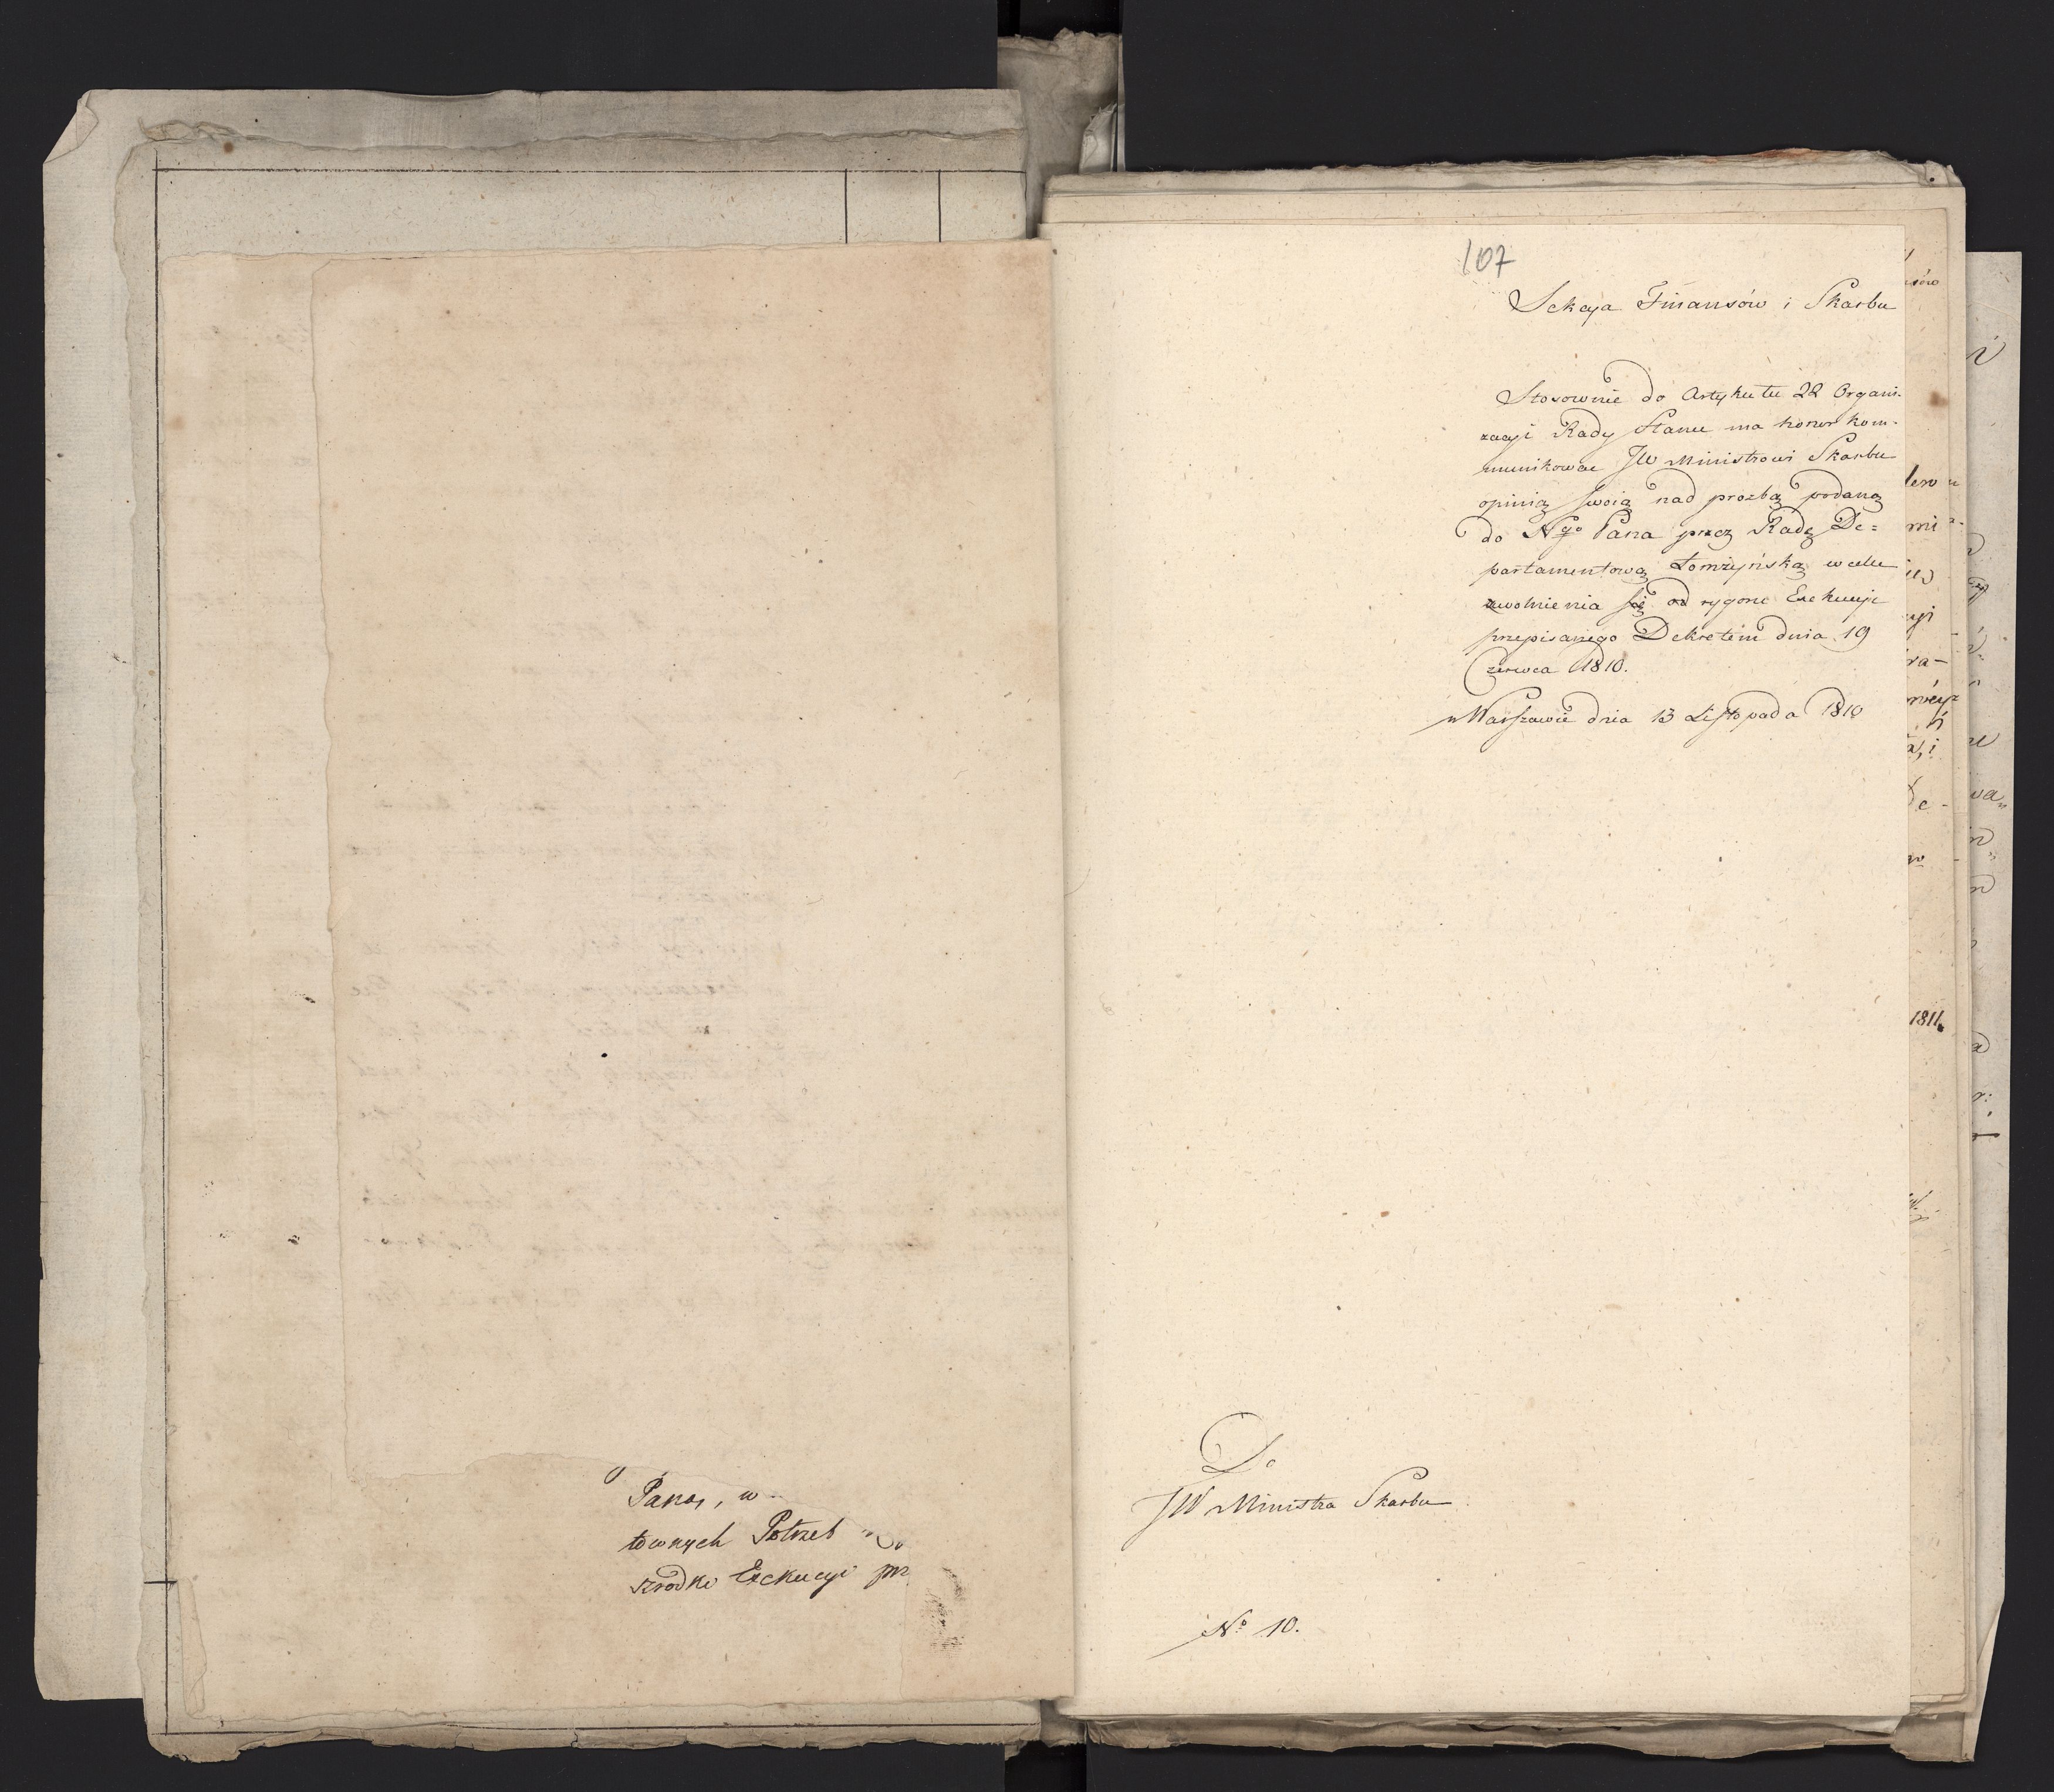 Pana, w
townych Potrzeb
srzodki Exekucyi prz
107
Sekcya Finansów i Skarbu
Stosownie do Artykułu 22 Organi-
zacyi Rady Stanu ma honor kom-
munikować JW Ministrowi Skarbu
opinią swoią nad prozbą podaną
do Nygo Pana przez Radę De=
partamentową Łomżyńską w celu
uwolnienia się od rygoru Exekucyi
przepisanego Dekretem dnia 19
Czerwca 1810.
w Warszawie dnia 13 Listopada 1810
Do
JW Ministra Skarbu
No 10.
1811.